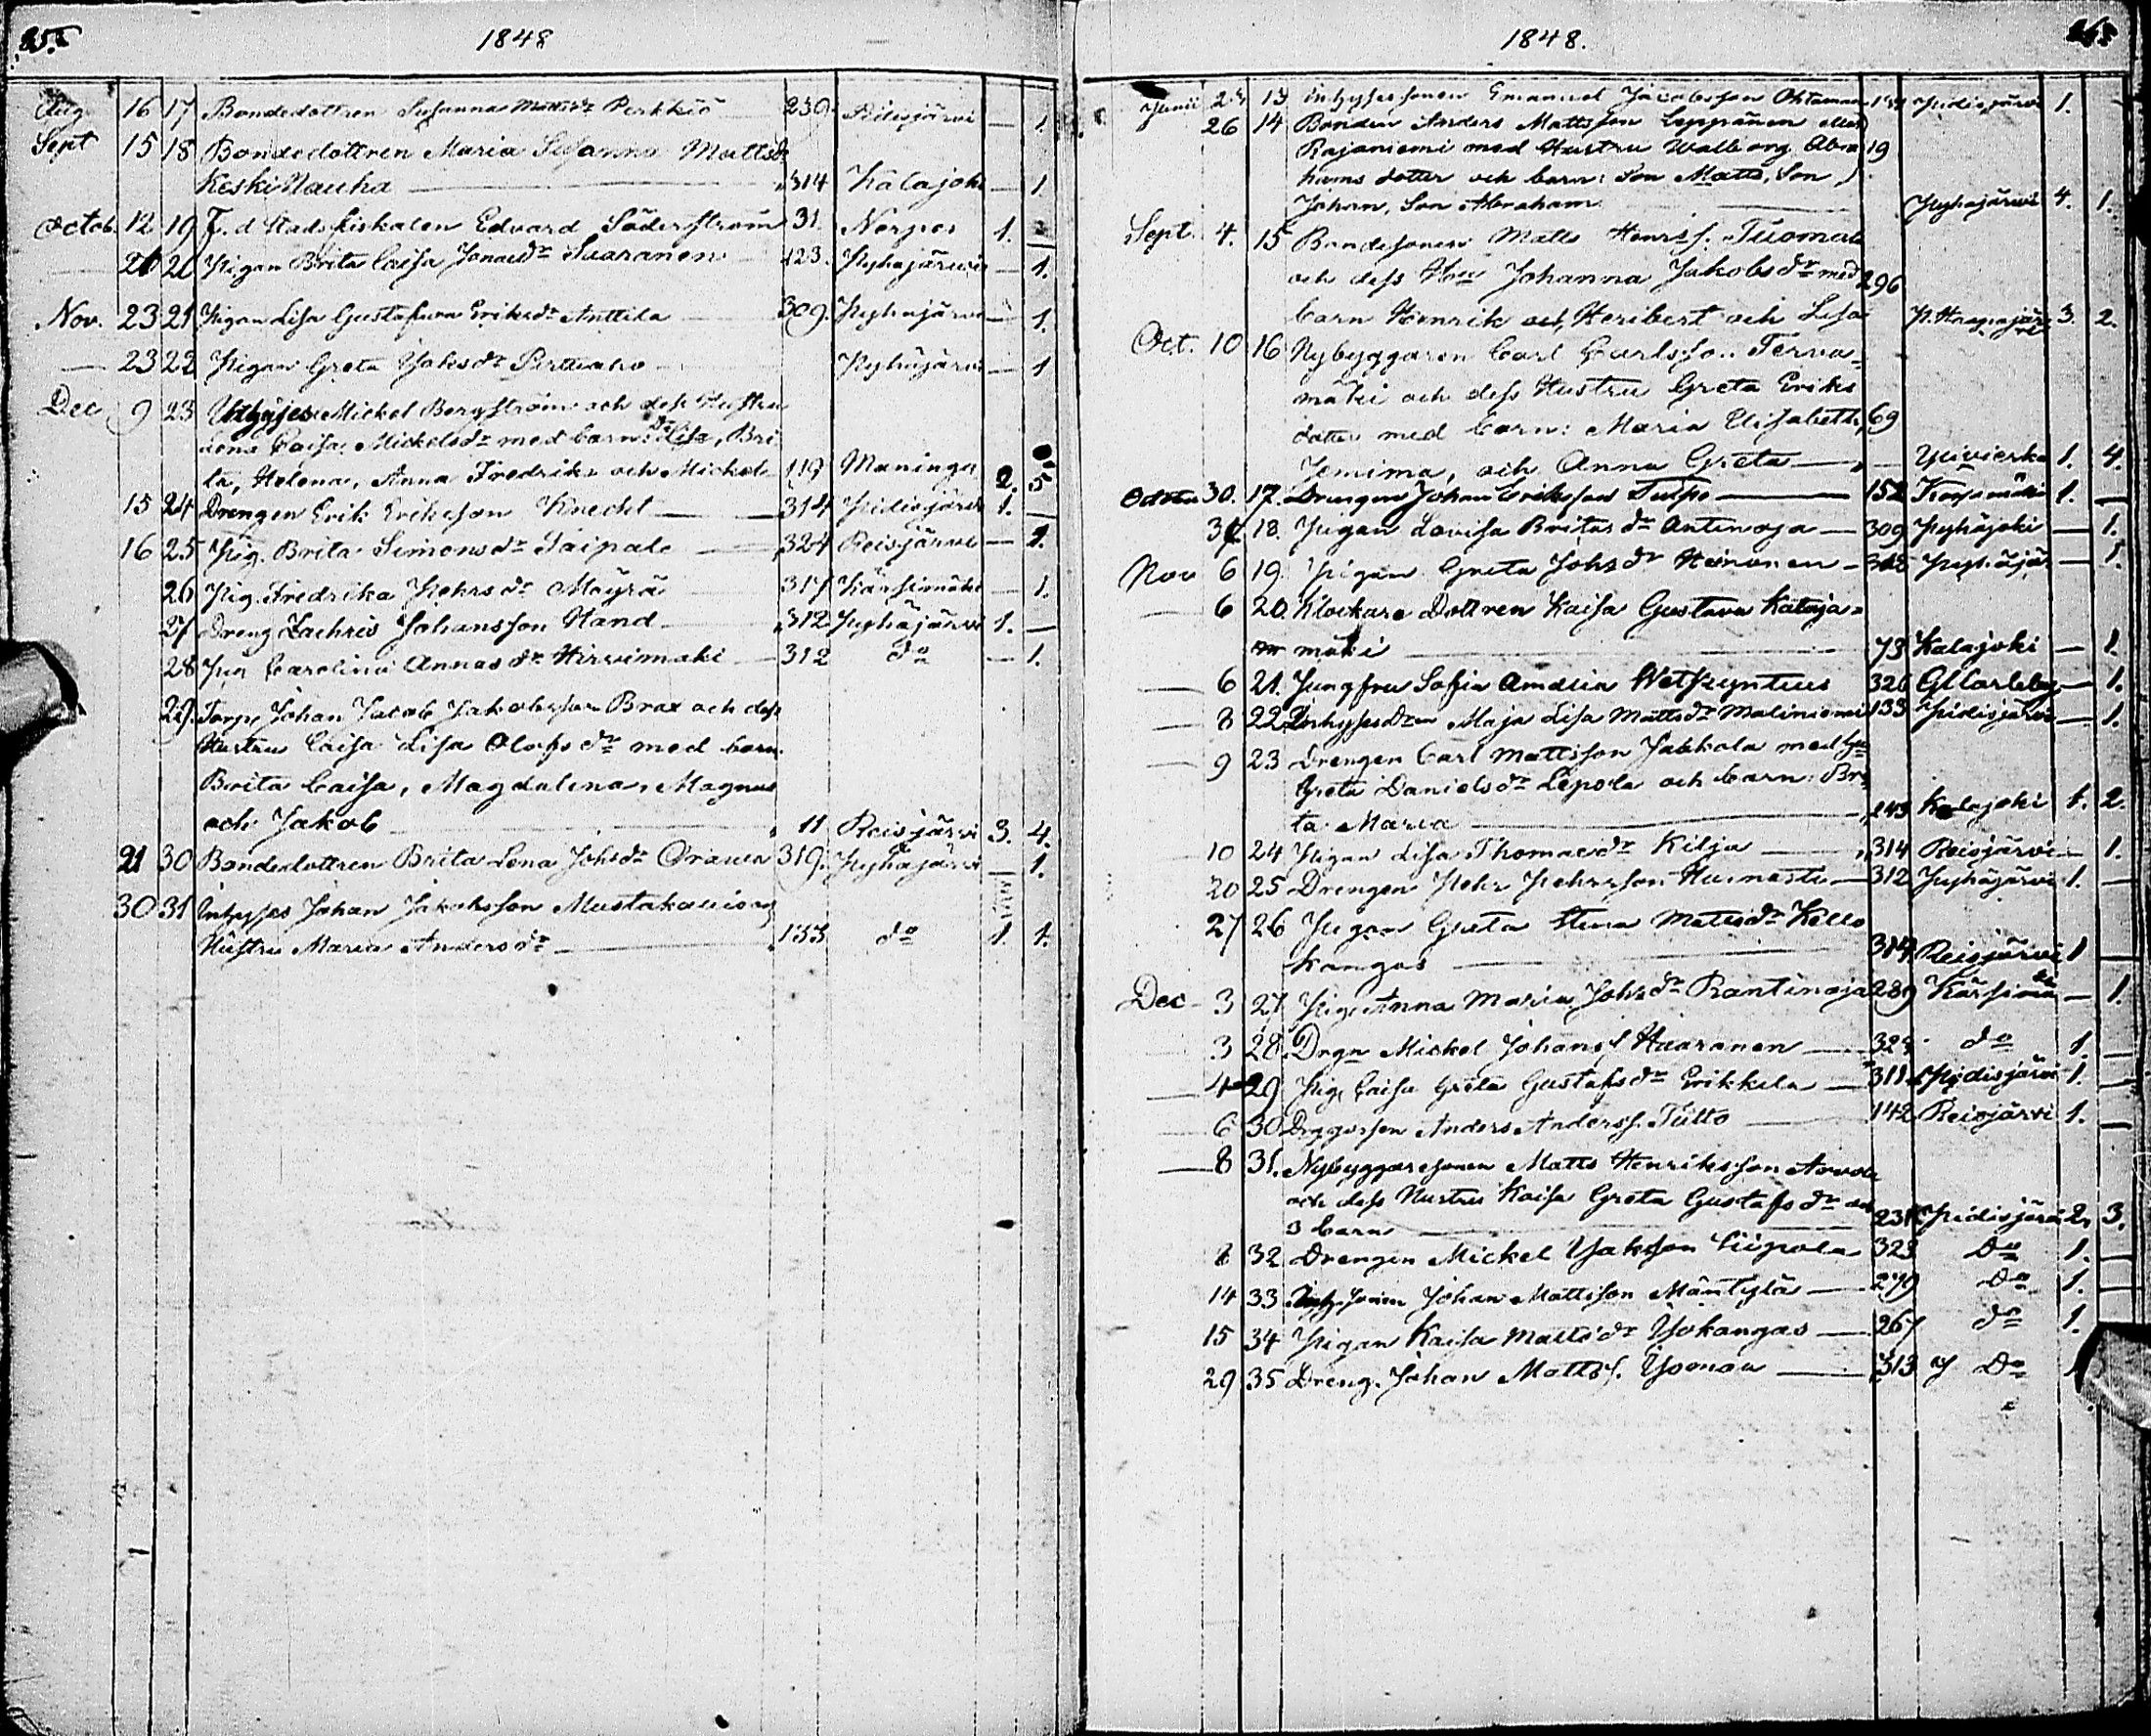 25.
1848
Aug 16 17 Bondedottren Susanna Mattsdr Perkkiö 230. Pidisjärvi — 1.
Sept 15 18 Bondedottren Maria Susanna Mattsdr
KeskiNauha — 314 Kalajoki — 1
Octob. 12 19 F.d Stadsfiskalen Edvard Söderström 31 Nerpes 1. —
20 20 Pigan Brita Caisa Jonaedr Suaranen 123. Pyhajärwi — 1.
Nov. 23 21 Pigan Lisa Gustafwa Eriksdr Anttila 309. Pyhajärvi — 1.
— 23 22 Pigan Greta Isaksdr Pyhäjärvi — 1
Dec 9 23 Inhyses Mickel Bergström och dess Hustru
Caisa Mickelsdr med barn: Lisa, Bri
ta, Helena, Anna Fredrika och Mickel 119 Maninga 2. 5
15 24 Drengen Erik Eriksson Knecht — 314 Pidisjärvi 1. —
16 25 Pig. Brita Simonsdr Saipale — 324 Reisjärvi — 1.
26 Pig. Fredrika Pehrsdr Mäyrä 317 Kärsämäki — 1.
27 Dreng Zachris Johansson Hand 312 Pyhäjärvi 1. —
28 Pig Carolina Annasdr Hirvimäki — 312 do — 1.
29. Torp. Johan Jacob Jakobsson Brax och dess
Hustru Caisa Lisa Olofsdr med barn
Brita Caisa, Magdalena, Magnus
och Jakob — 11 Reisjärvi 3. 4.
21 30 Bondedottren Brita Lena Johsdr Oravan 319. Pyhajärvi — 1.
30 31 Inhyses Johan Jakobsson Mustakangas
Hustru Maria Andersdr — 133 do 1. 1.
1848.
Junii 23 13 Inhysessonen Emanuel Jacobsson Ohtaman Pidisjärvi 1.
26 14 Bonden Anders Mattsson Leppänen eller
Rajaniemi med Hustru Walborg Abra 19
hams dotter och barn: Son Matts, Son
Johan, Son Abraham Pyhajärvi 4. 1.
Sept. 4. 15 Bondesonen Matts Henrss. Tuomala
och dess Hu Johanna Jakobsdr med 296
barn Henrik och Heribert och Lisa P. Haapajärvi 3. 2.
Oct. 10 16 Nybyggaren Carl Carlsson Terva-
mäki och dess Hustru Greta Eriks
dotter med barn: Maria Elisabeth, 69
Jemima, och Anna Greta — Ylivieska 1. 4.
30. 17. Drengen Johan Eriksson Tulpo — 152 Kärsämäki 1. —
31 18. Pigan Lovisa Britas dr Antinoja — 309 Pyhäjoki — 1.
Nov 6 19. Pigan Greta Johsdr Heinonen — 308 Pyhäjär — 1.
— 6 20. Klockare Dottren Kaisa Gustava Kataja-
mäki — 73 Kalajoki — 1.
— 6 21. Jungfru Sofia Amalia 326 Gl Carleby — 1.
— 8 22 Inhysesdrn Maja Lisa Mattsdr Maliniemi 133 Pidisjärvi — 1.
— 9 23 Drengen Carl Mattsson Jaakola med hu
Greta Danielsdr Lepola och barn: Bri
ta Maria — 243 Kalajoki 1. 2.
10 24 Pigan Lisa Thomaedr Kilja — 314 Reisjärvi — 1.
20 25 Drengen Pehr Pehrsson — 312 Pyhäjärvi 1. —
27 26 Pigan Greta Stina Mattsdr Kello
kangas — 314 Reisjärvi 1 —
Dec 3 27 Pig. Anna Maria Johsdr Rantinoja 289 Kärsämä — 1.
3 28. Drgn Mickel Johanss. Haaranen — 324 do 1. —
— 4 29 Pig. Caisa Greta Gustafsdr Erikkila — 311 Pidisjärvi 1. —
— 6 30 Dryggsson Anders Anderss. Tütto — 142 Reisjärvi 1. —
— 8 31. Nybyggaresonen Matts Henriksson
och dess Hustru Kaisa Greta Gustafsdr och
3 barn — 231 Pidisjärvi 2. 3.
8 32 Drengen Mickel Isaksson Siipola 323 Do 1. —
14 33 Inh. sonen Johan Mattsson Mäntylä — 279 Do 1. —
15 34 Pigan Kaisa Mattsdr Isokangas — 267 do 1.
29 35 Dreng. Johan Mattss. — 313 Do